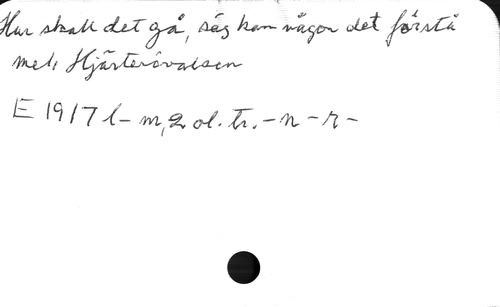 Hur skall det gå, säg kan någon det förstå
mel. Hjärterövalsen
E 1917 l - m, 2 ol. tr. - n - r -